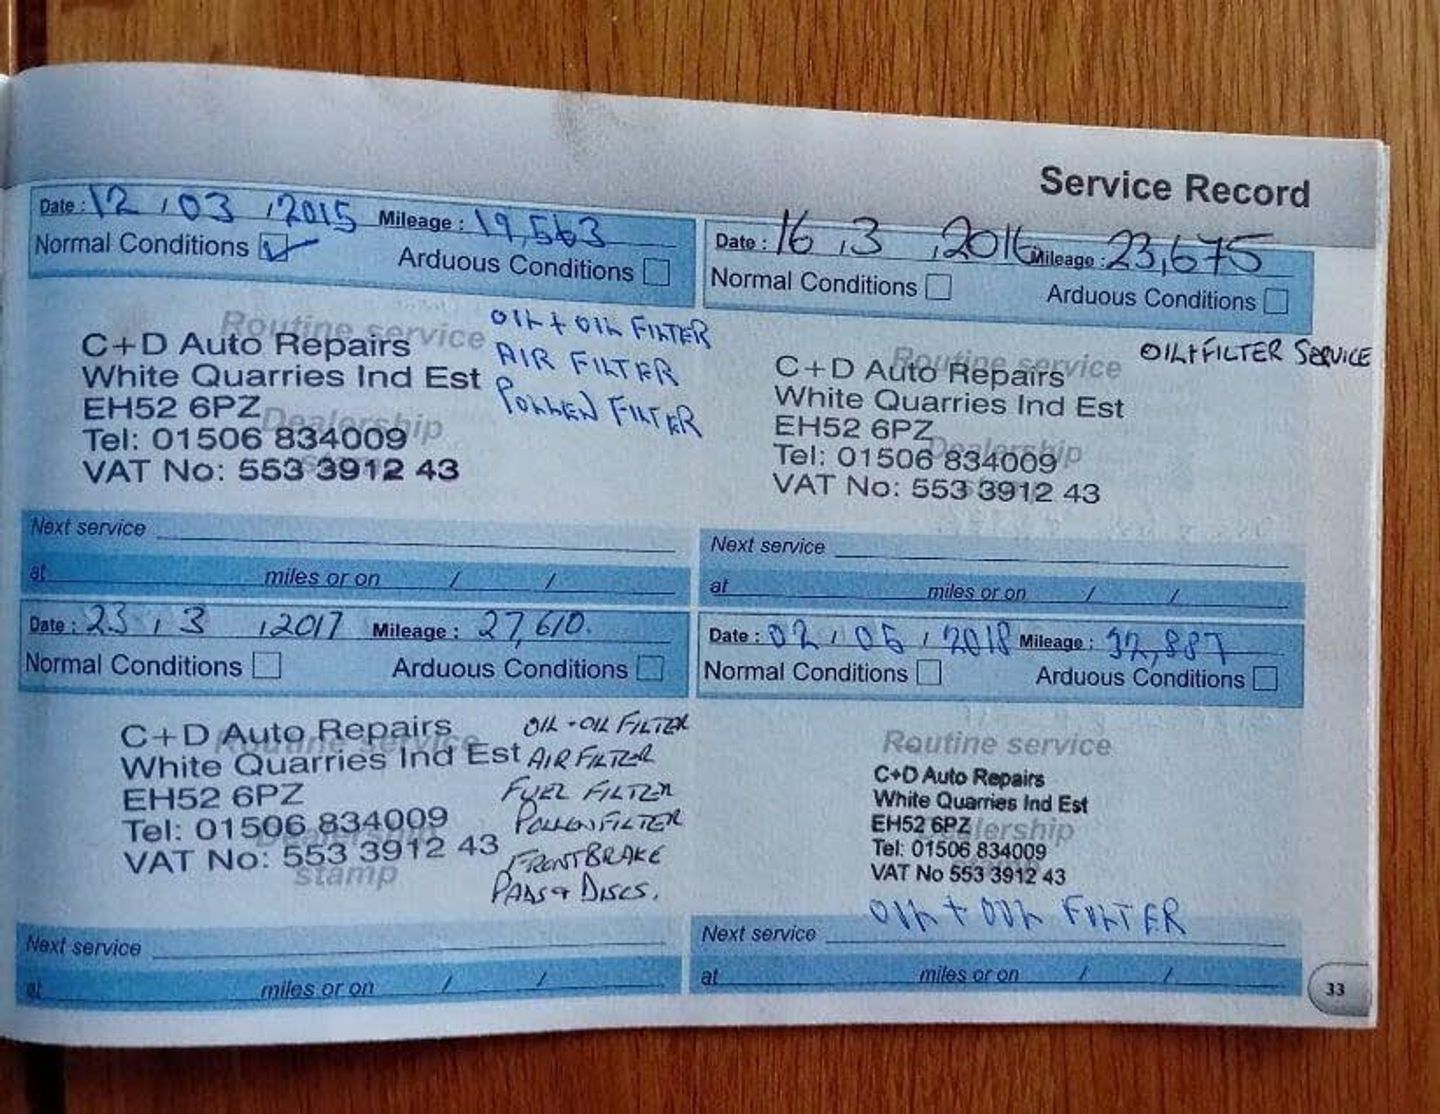 Service Record
Date : 12 / 03 / 2015 Mileage : 19,563
Normal Conditions
Arduous Conditions
Routine service
Dealership
C+D Auto Repairs
White Quarries Ind Est
EH52 6PZ
Tel: 01506 834009
VAT No: 553 3912 43
OIL + OIL FILTER
AIR FILTER
POLLEN FILTER
Next service
at miles or on / /
Date : 16 / 3 / 2016 Mileage : 23,675
Normal Conditions
Arduous Conditions
Routine service
Dealership
C+D Auto Repairs
White Quarries Ind Est
EH52 6PZ
Tel: 01506 834009
VAT No: 553 3912 43
OIL+FILTER SERVICE
Next service
at miles or on / /
Date : 23 / 3 / 2017 Mileage : 27,610.
Normal Conditions
Arduous Conditions
Routine service
Dealership
stamp
C+D Auto Repairs
White Quarries Ind Est
EH52 6PZ
Tel: 01506 834009
VAT No: 553 3912 43
OIL + OIL FILTER
AIR FILTER
FUEL FILTER
POLLEN FILTER
FRONT BRAKE
PADS + DISCS.
Next service
at miles or on / /
Date : 02 / 05 / 2018 Mileage : 32,887
Normal Conditions
Arduous Conditions
Routine service
Dealership
C+D Auto Repairs
White Quarries Ind Est
EH52 6PZ
Tel: 01506 834009
VAT No 553 3912 43
OIL + OIL FILTER
Next service
at miles or on / /
33